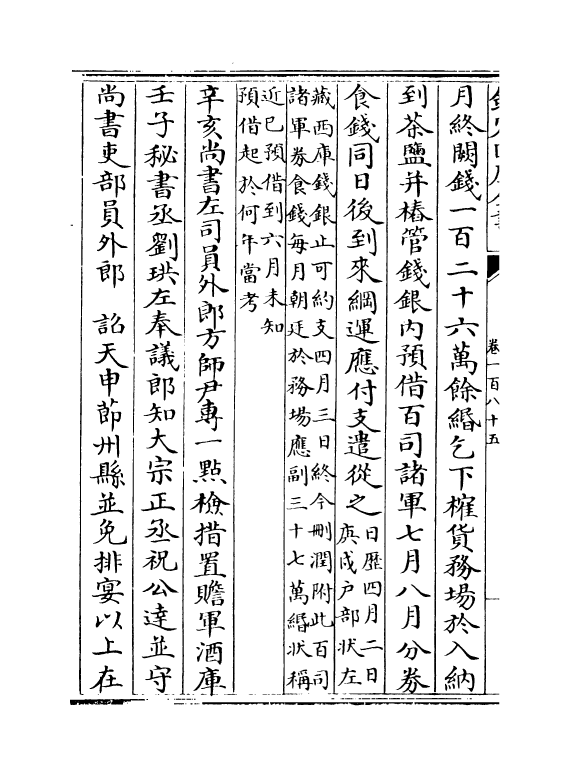 欽定四庫全書
卷一百八十五
月終闕錢一百二十六萬餘緡乞下榷貨務場於入納
到茶鹽并樁管錢銀内預借百司諸軍七月八月分券
食錢同日後到來綱運應付支遣從之
日歷四月二日
庚戌户部狀左
藏西庫錢銀止可約支四月三日終今刪潤附此百司
諸軍券食錢每月朝廷於務場應副三十七萬緡狀稱
近已預借到六月未知
預借起於何年當考
辛亥尚書左司員外郎方師尹專一點檢措置贍軍酒庫
壬子秘書丞劉珙左奉議郎知大宗正丞祝公達並守
尚書吏部員外郎　詔天申節州縣並免排宴以上在